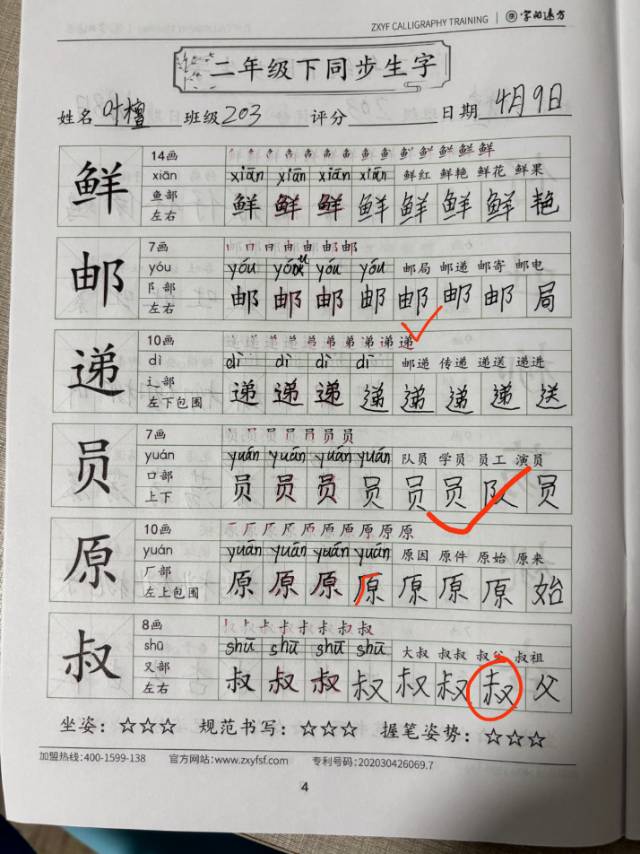 ZXYF CALLIGRAPHY TRAINING | 字的远方
二年级下同步生字
姓名 叶檀 班级 203 评分 日期 4月9日
鲜 14画
xiān xiān xiān xiān xiān 鲜红 鲜艳 鲜花 鲜果
鱼部
左右 鲜 鲜 鲜 鲜 鲜 鲜 鲜 艳
邮 7画
yóu yóu yóu yóu yóu 邮局 邮递 邮寄 邮电
阝部
左右 邮 邮 邮 邮 邮 邮 邮 局
递 10画
dì dì dì dì dì 邮递 传递 递送 递进
辶部
左下包围 递 递 递 递 递 递 递 送
员 7画
yuán yuán yuán yuán yuán 队员 学员 员工 演员
口部
上下 员 员 员 员 员 员 队 员
原 10画
yuán yuán yuán yuán yuán 原因 原件 原始 原来
厂部
左上包围 原 原 原 原 原 原 原 始
叔 8画
shū shū shū shū shū 大叔 叔叔 叔父 叔祖
又部
左右 叔 叔 叔 叔 叔 叔 叔 父
坐姿：☆☆☆ 规范书写：☆☆☆ 握笔姿势：☆☆☆
加盟热线:400-1599-138 官方网站:www.zxyfsf.com 专利号码:202030426069.7
4